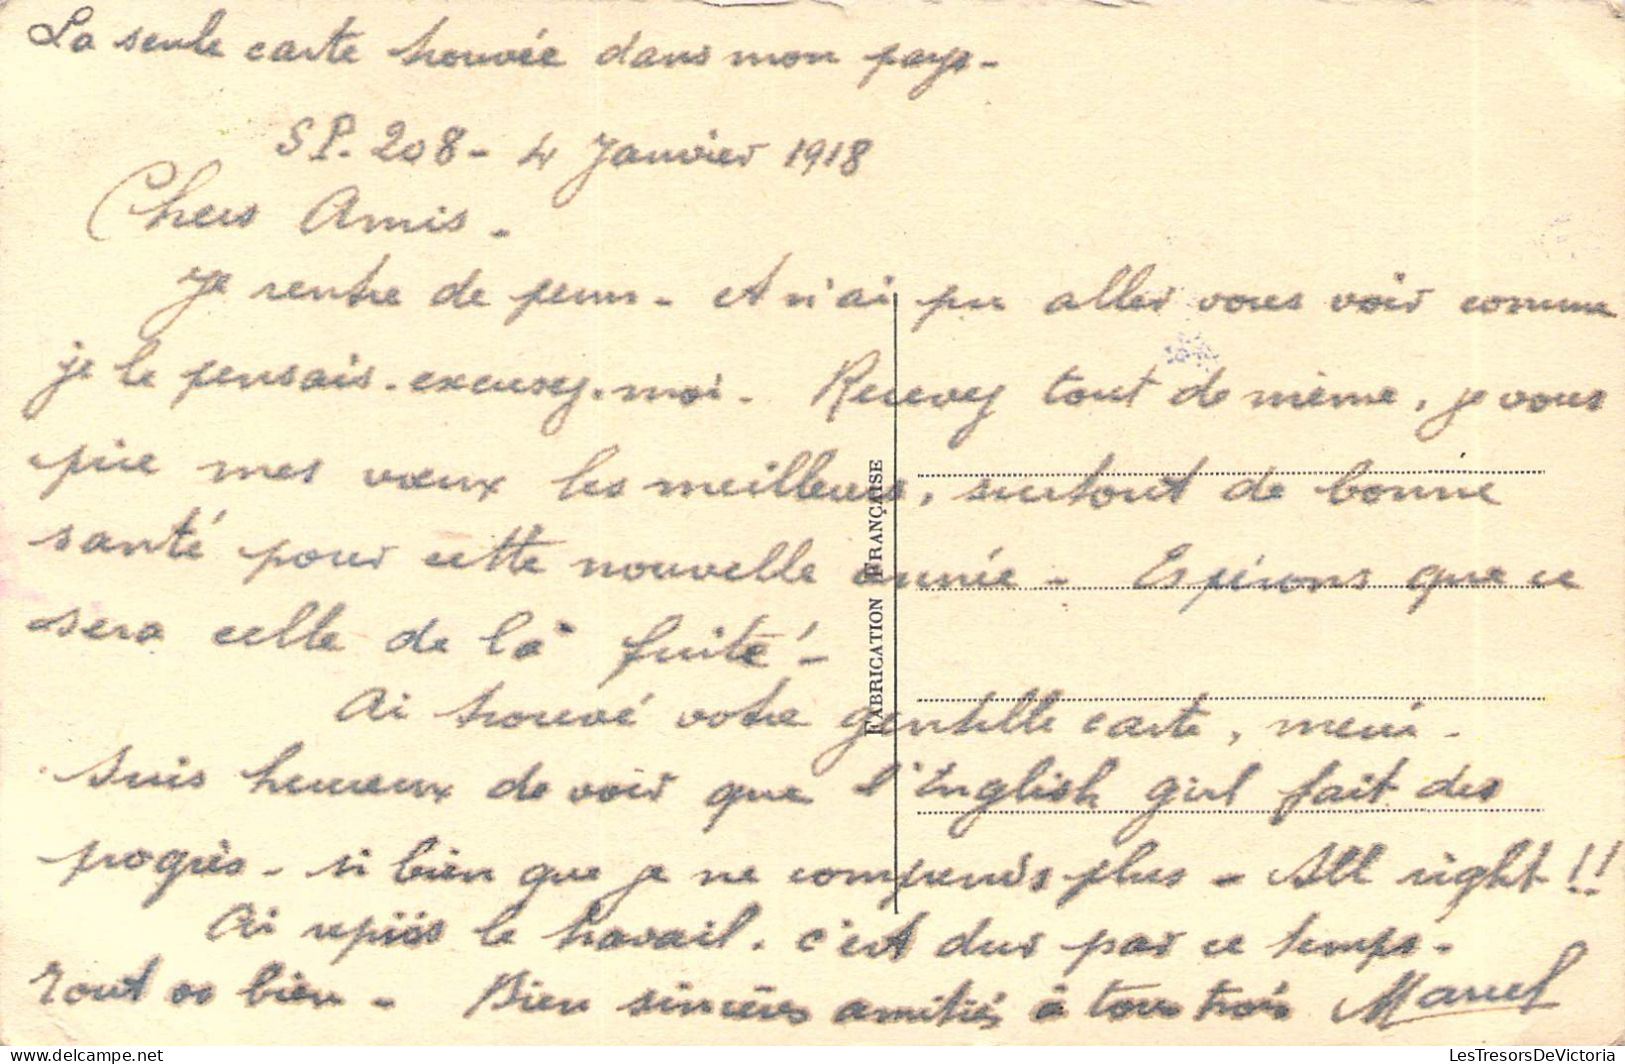 La seule carte trouvée dans mon pays -
SP. 208 - 4 Janvier 1918
Chers Amis -
Je rentre de perm - et n'ai pu aller vous voir comme
je le pensais - excusez-moi - Recevez tout de même, je vous
prie mes vœux les meilleurs, surtout de bonne
santé pour cette nouvelle année - Espérons que ce
sera celle de la fuite -
Ai trouvé votre gentille carte, merci -
Suis heureux de voir que l'English girl fait des
progrès - si bien que je ne comprends plus - All right !!
Ai repris le travail. c'est dur par ce temps -
Tout va bien - Bien sincères amitiés à tous trois Marcel
FABRICATION FRANÇAISE
delcampe.net
LesTresorsDeVictoria